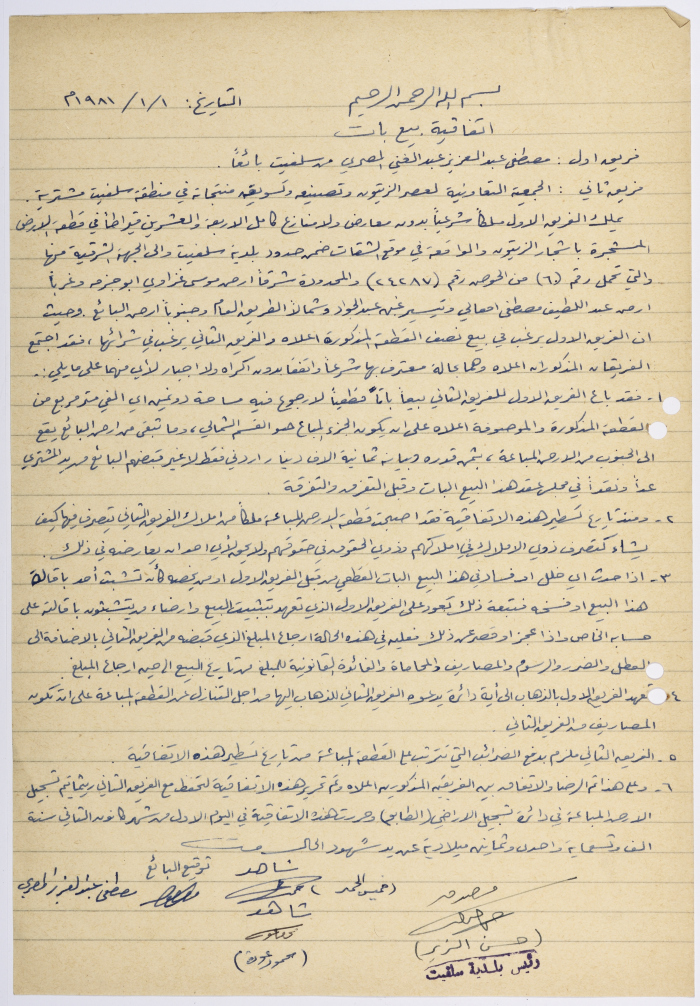 بسم الله الرحمن الرحيم
التاريخ: ١/١/١٩٨١م
اتفاقية بيع بات
فريق اول : مصطفى عبد العزيز عبد الغني المصري من سلفيت بائعاً .
فريق ثاني : الجمعية التعاونية لعصر الزيتون وتصنيعه وتسويق منتجاته في منطقة سلفيت مشترية .
يملك الفريق الاول ملكاً شرعياً بدون معارض ولا منازع كامل الاربعة والعشرين قيراطاً في قطعة الارض
المشجرة باشجار الزيتون والواقعة في موقع الشقات ضمن حدود بلدية سلفيت والى الجهة الشرقية منها
والتي تحمل رقم (٦) من الحوض رقم (٢٤٢٨٧) والمحدودة شرقاً ارض موسى غزاوي ابو جزه وغرباً
ارض عبد اللطيف مصطفى امعالي وتيسير غبن عبد الجواد وشمالاً الطريق العام وجنوباً ارض البائع . وحيث
ان الفريق الاول يرغب في بيع نصف القطعة المذكورة اعلاه والفريق الثاني يرغب في شرائها ، فقد اجتمع
الفريقان المذكوران اعلاه وهما بحالة معترف بها شرعاً واتفقا بدون اكراه ولا اجبار لأي منهما على ما يلي :-
١- فقد باع الفريق الاول للفريق الثاني بيعاً باتاً قطعياً لا رجوع فيه مساحة دونمين اي الفي متر مربع من
القطعة المذكورة والموصوفة اعلاه على ان يكون الجزء المباع هو القسم الشمالي ، وما تبقى من ارض البائع يقع
الى الجنوب من الارض المباعة ، بثمن قدره وبيانه ثمانية الاف دينار اردني فقط لا غير قبضهم البائع من يد المشتري
عداً ونقداً في مجلس عقد هذا البيع البات وقبل التفرق والتفرقة
٢- ومنذ تاريخ تسطير هذه الاتفاقية فقد اصبحت قطعة الارض المباعة ملكاً من املاك الفريق الثاني يتصرف فيها كيف
يشاء كتصرف ذوي الاملاك في املاكهم وذوي الحقوق في حقوقهم ولا يحق لأي احد ان يعارضه في ذلك .
٣- اذا حدث اي خلل او فساد في هذا البيع البات القطعي من قبل الفريق الاول او من يخصه كأن تشبث أحد باقالة
هذا البيع او فسخه فتبعة ذلك تعود على الفريق الاول الذي تعهد بتثبيت البيع وارضاء من يتشبثون باقالته على
حسابه الخاص واذا عجز او قصر عن ذلك فعليه في هذه الحالة ارجاع المبلغ الذي قبضه من الفريق الثاني بالاضافة الى
العطل والضرر والرسوم والمصاريف والمحاماة والفائدة القانونية للمبلغ من تاريخ البيع الى حين ارجاع المبلغ .
٤- تعهد الفريق الاول بالذهاب الى أية دائرة يدعوه الفريق الثاني الذهاب اليها من اجل التنازل عن القطعة المباعة على ان تكون
المصاريف من الفريق الثاني .
٥- الفريق الثاني ملزم بدفع الضرائب التي تترتب على القطعة المباعة من تاريخ تسطير هذه الاتفاقية .
٦- وعلى هذا تم الرضا والاتفاق بين الفريقين المذكورين اعلاه وتم تحرير هذه الاتفاقية لتحفظ مع الفريق الثاني ريثما يتم تسجيل
الارض المباعة في دائرة تسجيل الاراضي (الطابو) وحررت هذه الاتفاقية في اليوم الاول من شهر كانون الثاني سنة
الف وتسعماية واحدى وثمانين ميلادية عن يد شهود الحال
توقيع البائع
مصطفى عبد العزيز المصري
شاهد
شاهد
(محمود عودة)
مصدق
(حسن الزير)
رئيس بلدية سلفيت